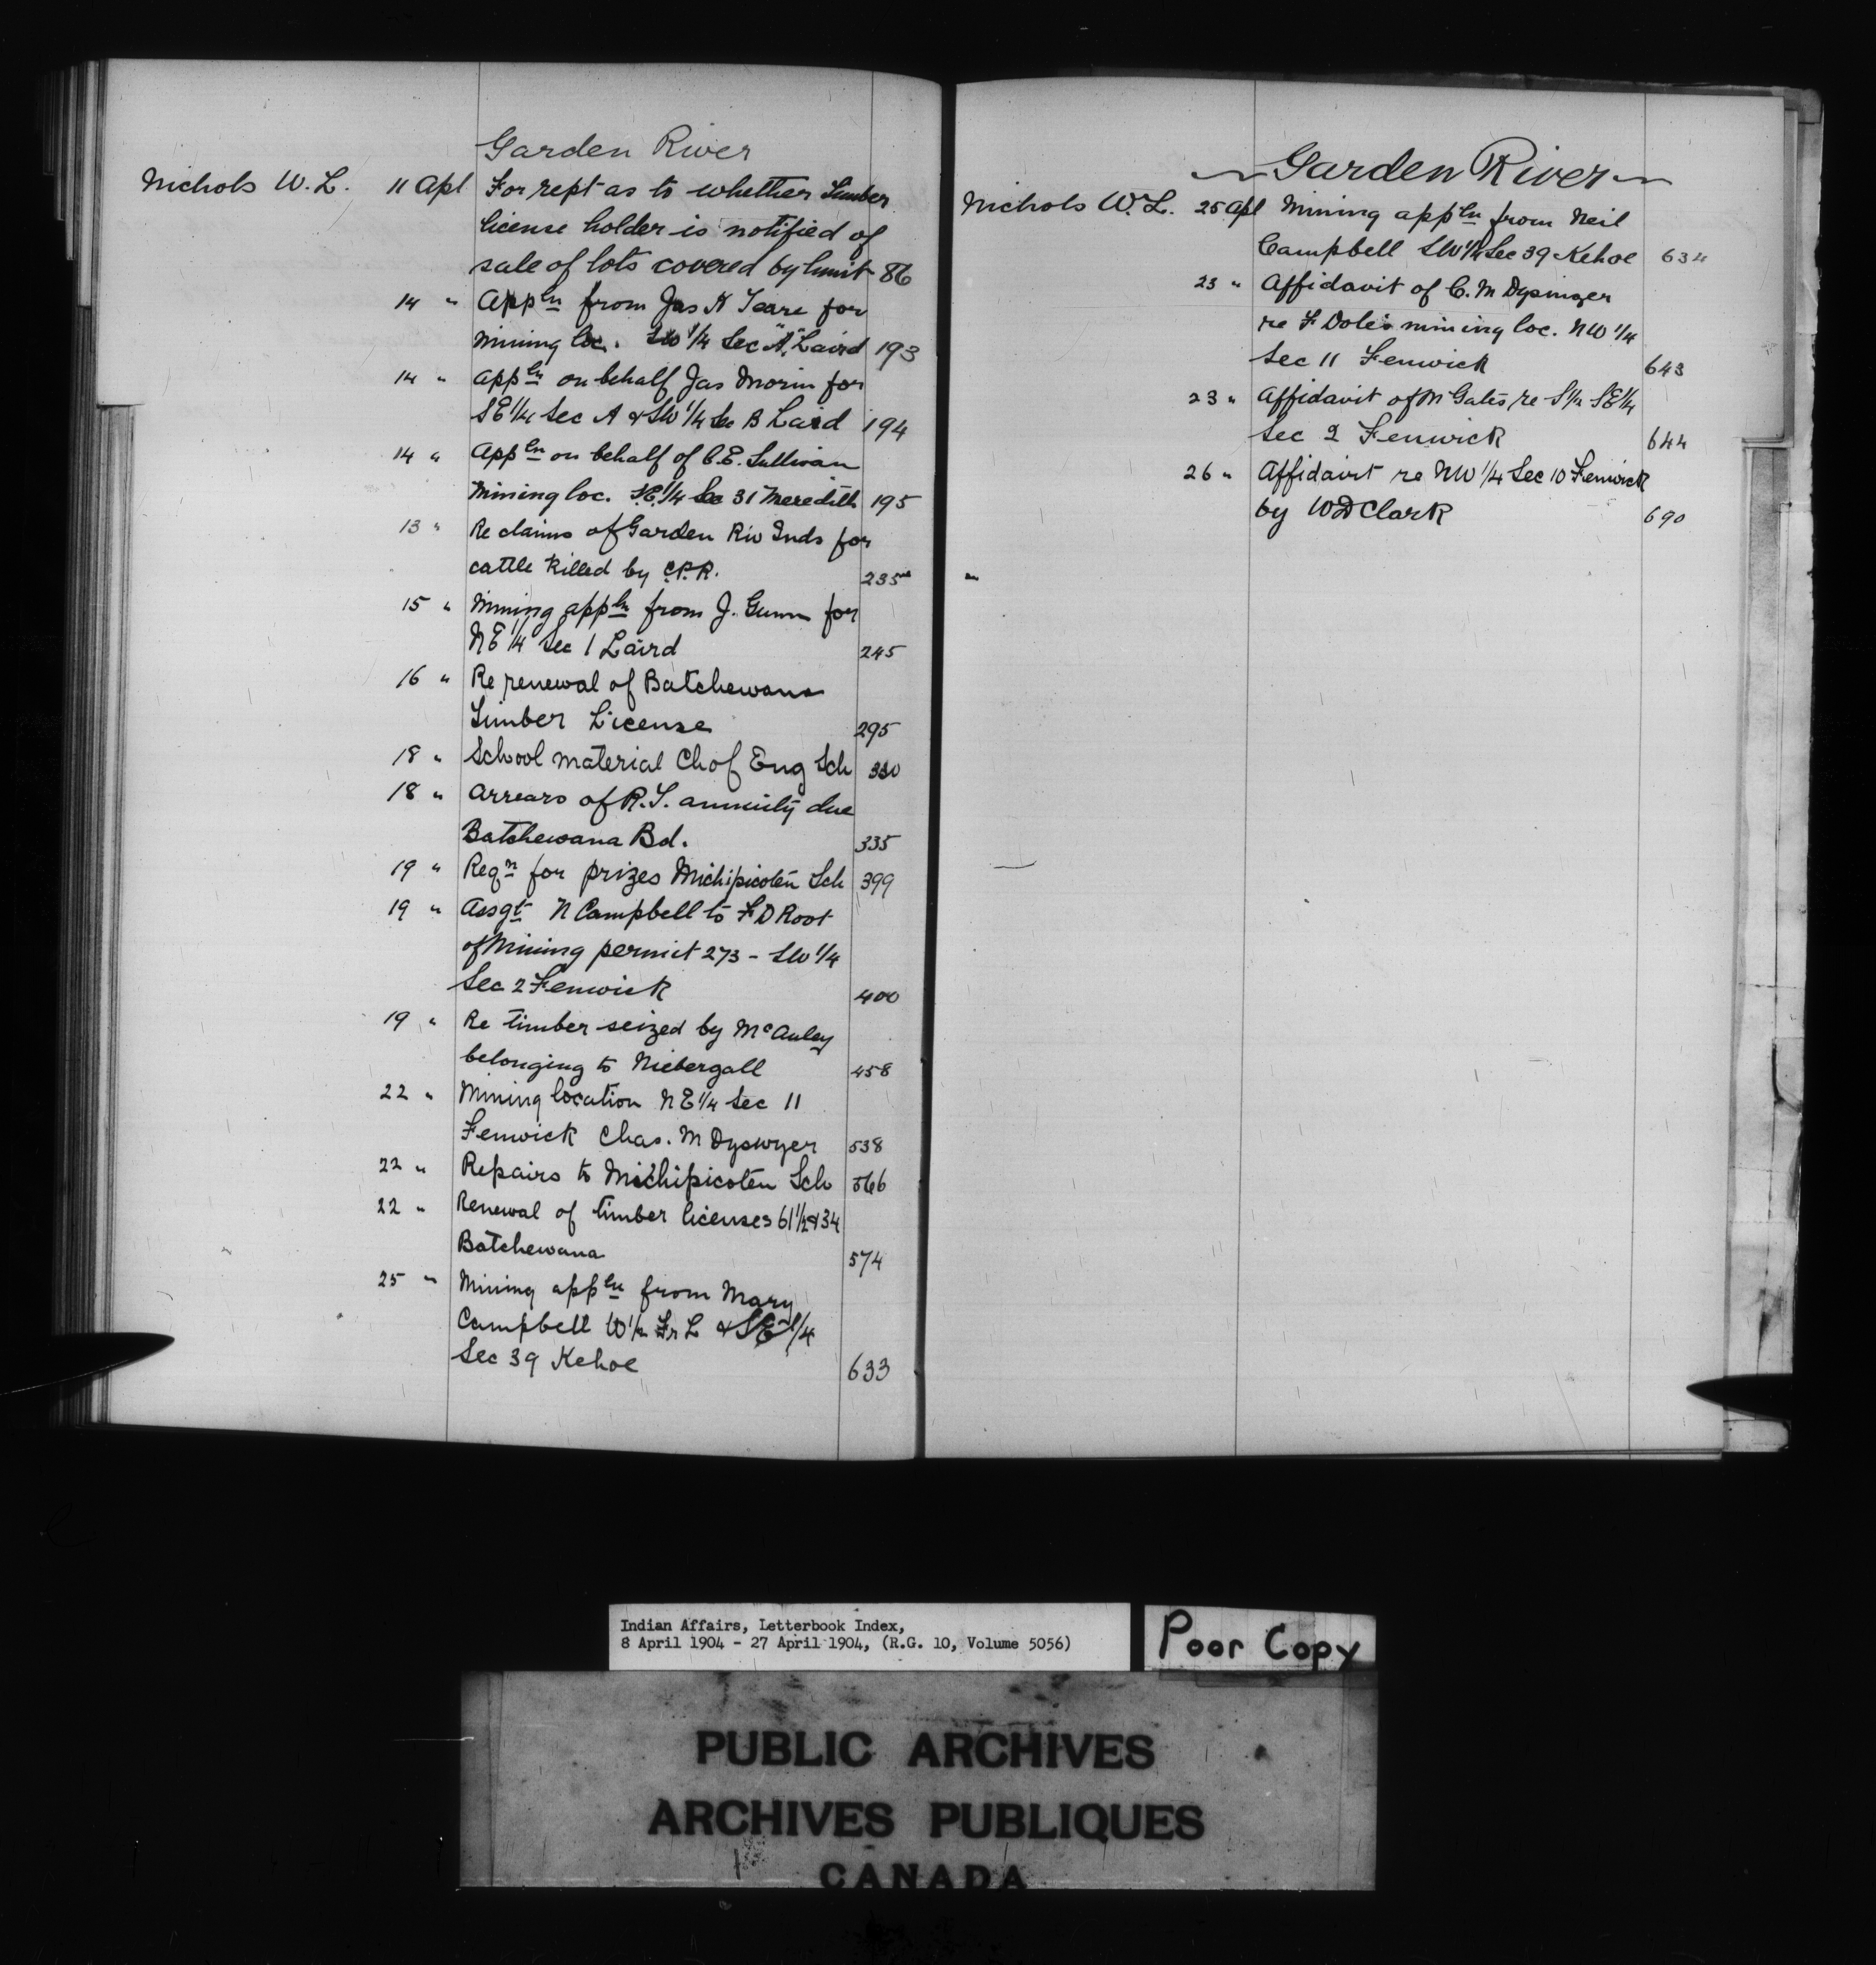 Garden River
Nichols W. L. 11 Apl For rept as to whether timber
license holder is notified of
sale of lots covered by limit 86
14 " Appln from Jas H Teare for
mining loc. SW 1/4 Sec "A" Laird 193
14 " Appln on behalf Jas Morin for
SE 1/4 Sec A & SW 1/4 Sec B Laird 194
14 " Appln on behalf of C.E. Sullivan
Mining loc. SE 1/4 Sec 31 Meredith 195
13 " Re claims of Garden Riv Inds for
cattle killed by C.P.R. 235
15 " Mining appln from J. Gunn for
NE 1/4 Sec 1 Laird 245
16 " Re renewal of Batchewana
Timber License 295
18 " School material Ch of Eng Sch 330
18 " Arrears of R.T. annuity due
Batchewana Bd. 335
19 " Reqn for prizes Michipicoten Sch 399
19 " Assgt N Campbell to F D Root
of Mining permit 273 - SW 1/4
Sec 2 Fenwick 400
19 " Re timber seized by McAuley
belonging to Niebergall 458
22 " Mining location NE 1/4 Sec 11
Fenwick Chas. M Dyswyer 538
22 " Repairs to Michipicoten Sch 566
22 " Renewal of timber licenses 61 1/2 & 34
Batchewana 574
25 " Mining appln from Mary
Campbell W 1/2 Fr L & SE 1/4
Sec 39 Kehoe 633
Garden River
Nichols W. L. 25 Apl Mining appln from Neil
Campbell SW 1/4 Sec 39 Kehoe 634
23 " Affidavit of C. M Dysinger
re F Dole's mining loc. NW 1/4
Sec 11 Fenwick 643
23 " Affidavit of M Gates re S 1/2 SE 1/4
Sec 2 Fenwick 644
26 " Affidavit re NW 1/4 Sec 10 Fenwick
by W D Clark 690
Indian Affairs, Letterbook Index,
8 April 1904 - 27 April 1904, (R.G. 10, Volume 5056)
Poor Copy
PUBLIC ARCHIVES
ARCHIVES PUBLIQUES
CANADA